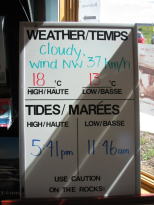 WEATHER/TEMPS
Cloudy,
wind NW 37 km/h
18 °C 13 °C
HIGH/HAUTE LOW/BASSE
TIDES/MARÉES
HIGH/HAUTE LOW/BASSE
5:41 pm 11:46 am
USE CAUTION
ON THE ROCKS!